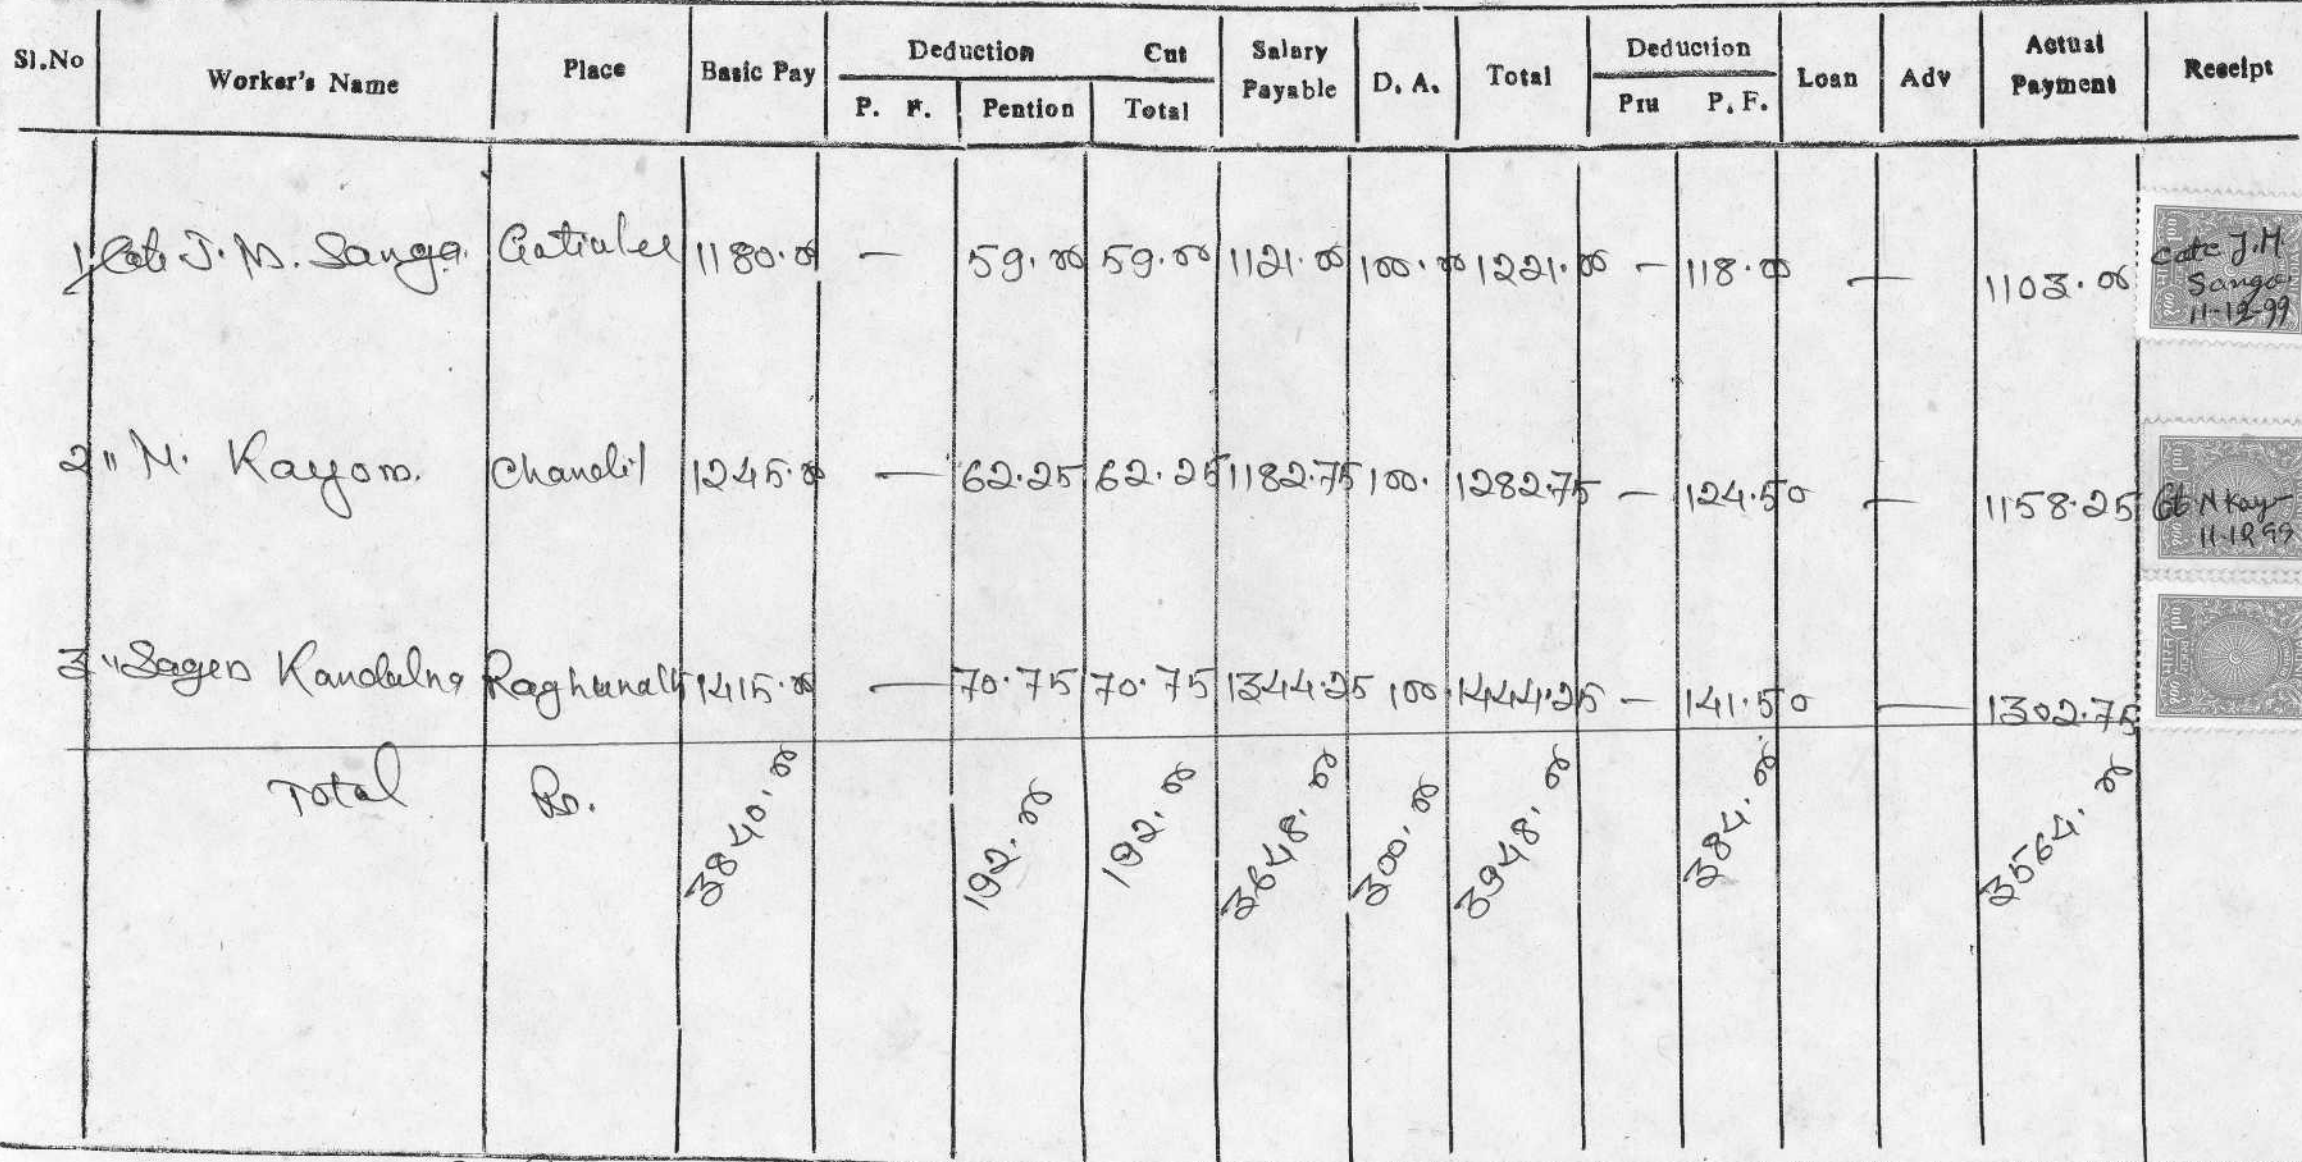 Sl.No Worker's Name Place Basic Pay Deduction Cut Salary Payable D. A. Total Deduction Loan Adv Actual Payment Receipt
P. F. Pention Total Pru P. F.
1 J. M. Sanga 1180.00 — 59.00 59.00 1121.00 100.00 1221.00 — 118.00 — 1103.00 Cate J.M. Sanga 11-12-99
2 " M. Kayom. Chandil 1245.00 — 62.25 62.25 1182.75 100. 1282.75 — 124.50 — 1158.25 N Kay 11.12.99
3 " Kandulna Raghunath 1415.00 — 70.75 70.75 1344.25 100. 1444.25 — 141.50 — 1302.75
Total Rs. 3840.00 192.00 192.00 3648.00 300.00 3948.00 384.00 3564.00